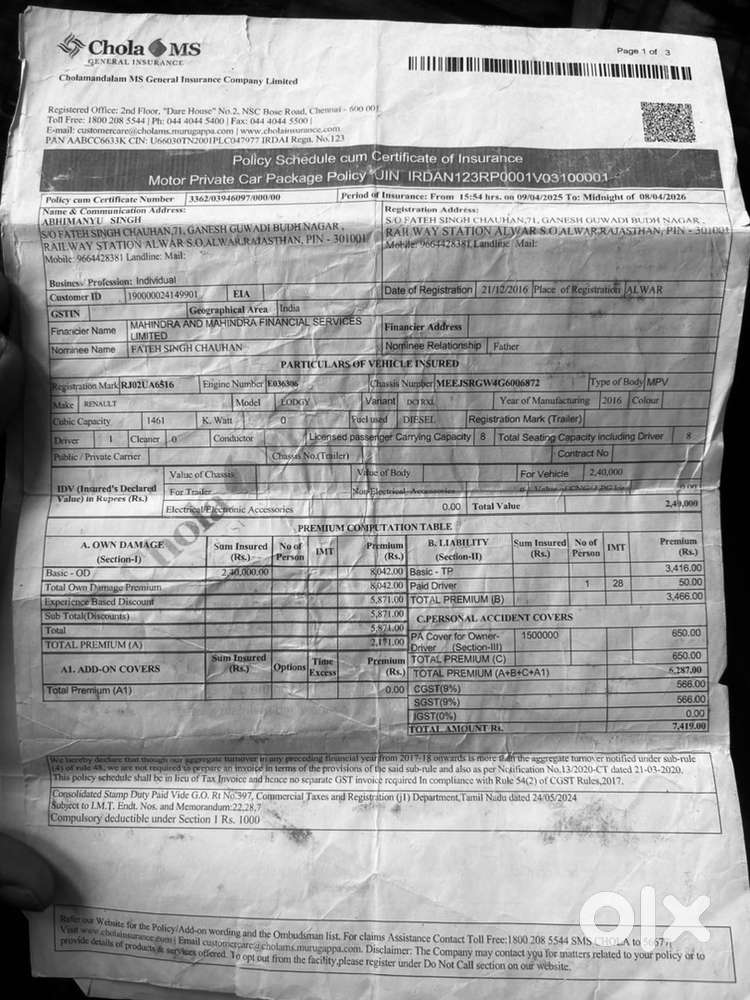 Chola MS
GENERAL INSURANCE
Page 1 of 3
Cholamandalam MS General Insurance Company Limited
Registered Office: 2nd Floor, "Dare House" No.2, NSC Bose Road, Chennai - 600 001
Toll Free: 1800 208 5544 | Ph: 044 4044 5400 | Fax: 044 4044 5500 |
E-mail: customercare@cholams.murugappa.com | www.cholainsurance.com
PAN AABCC6633K CIN: U66030TN2001PLC047977 IRDAI Regn. No.123
Policy Schedule cum Certificate of Insurance
Motor Private Car Package Policy UIN IRDAN123RP0001V03100001
Policy cum Certificate Number 3362/03946097/000/00 Period of Insurance: From 15:54 hrs. on 09/04/2025 To: Midnight of 08/04/2026
Name & Communication Address: Registration Address:
ABHIMANYU SINGH
S/O FATEH SINGH CHAUHAN,71, GANESH GUWADI BUDH NAGAR , S/O FATEH SINGH CHAUHAN,71, GANESH GUWADI BUDH NAGAR ,
RAILWAY STATION ALWAR S.O,ALWAR,RAJASTHAN, PIN - 301001 RAILWAY STATION ALWAR S.O,ALWAR,RAJASTHAN, PIN - 301001
Mobile: 9664428381 Landline: Mail: Mobile: 9664428381 Landline: Mail:
Business/ Profession: Individual
Customer ID 190000024149901 EIA Date of Registration 21/12/2016 Place of Registration ALWAR
GSTIN Geographical Area India
Financier Name MAHINDRA AND MAHINDRA FINANCIAL SERVICES LIMITED Financier Address
Nominee Name FATEH SINGH CHAUHAN Nominee Relationship Father
PARTICULARS OF VEHICLE INSURED
Registration Mark RJ02UA6516 Engine Number E036306 Chassis Number MEEJSRGW4G6006872 Type of Body MPV
Make RENAULT Model LODGY Variant DCI RXL Year of Manufacturing 2016 Colour
Cubic Capacity 1461 K. Watt 0 Fuel used DIESEL Registration Mark (Trailer)
Driver 1 Cleaner 0 Conductor Licensed passenger Carrying Capacity 8 Total Seating Capacity including Driver 8
Public / Private Carrier Chassis No.(Trailer) Contract No
IDV (Insured's Declared Value) in Rupees (Rs.) Value of Chassis Value of Body For Vehicle 2,40,000
For Trailer Non-Electrical Accessories 0.00
Electrical/Electronic Accessories 0.00 Total Value 2,40,000
PREMIUM COMPUTATION TABLE
A. OWN DAMAGE (Section-I) Sum Insured (Rs.) No of Person IMT Premium (Rs.) B. LIABILITY (Section-II) Sum Insured (Rs.) No of Person IMT Premium (Rs.)
Basic - OD 2,40,000.00 8,042.00 Basic - TP 3,416.00
Total Own Damage Premium 8,042.00 Paid Driver 1 28 50.00
Experience Based Discount 5,871.00 TOTAL PREMIUM (B) 3,466.00
Sub Total(Discounts) 5,871.00 C.PERSONAL ACCIDENT COVERS
Total 5,871.00 PA Cover for Owner-Driver (Section-III) 1500000 650.00
TOTAL PREMIUM (A) 2,171.00
A1. ADD-ON COVERS Sum Insured (Rs.) Options Time Excess Premium (Rs.) TOTAL PREMIUM (C) 650.00
TOTAL PREMIUM (A+B+C+A1) 6,287.00
Total Premium (A1) 0.00 CGST(9%) 566.00
SGST(9%) 566.00
IGST(0%) 0.00
TOTAL AMOUNT Rs. 7,419.00
We hereby declare that though our aggregate turnover in any preceding financial year from 2017-18 onwards is more than the aggregate turnover notified under sub-rule
(4) of rule 48, we are not required to prepare an invoice in terms of the provisions of the said sub-rule and also as per Notification No.13/2020-CT dated 21-03-2020.
This policy schedule shall be in lieu of Tax Invoice and hence no separate GST invoice required In compliance with Rule 54(2) of CGST Rules,2017.
Consolidated Stamp Duty Paid Vide G.O. Rt No.397, Commercial Taxes and Registration (j1) Department,Tamil Nadu dated 24/05/2024
Subject to I.M.T. Endt. Nos. and Memorandum:22,28,7
Compulsory deductible under Section 1 Rs. 1000
Refer our Website for the Policy/Add-on wording and the Ombudsman list. For claims Assistance Contact Toll Free:1800 208 5544 SMS CHOLA to 56677
Visit www.cholainsurance.com | Email customercare@cholams.murugappa.com. Disclaimer: The Company may contact you for matters related to your policy or to
provide details of products & services offered. To opt out from the facility,please register under Do Not Call section on our website.
olx